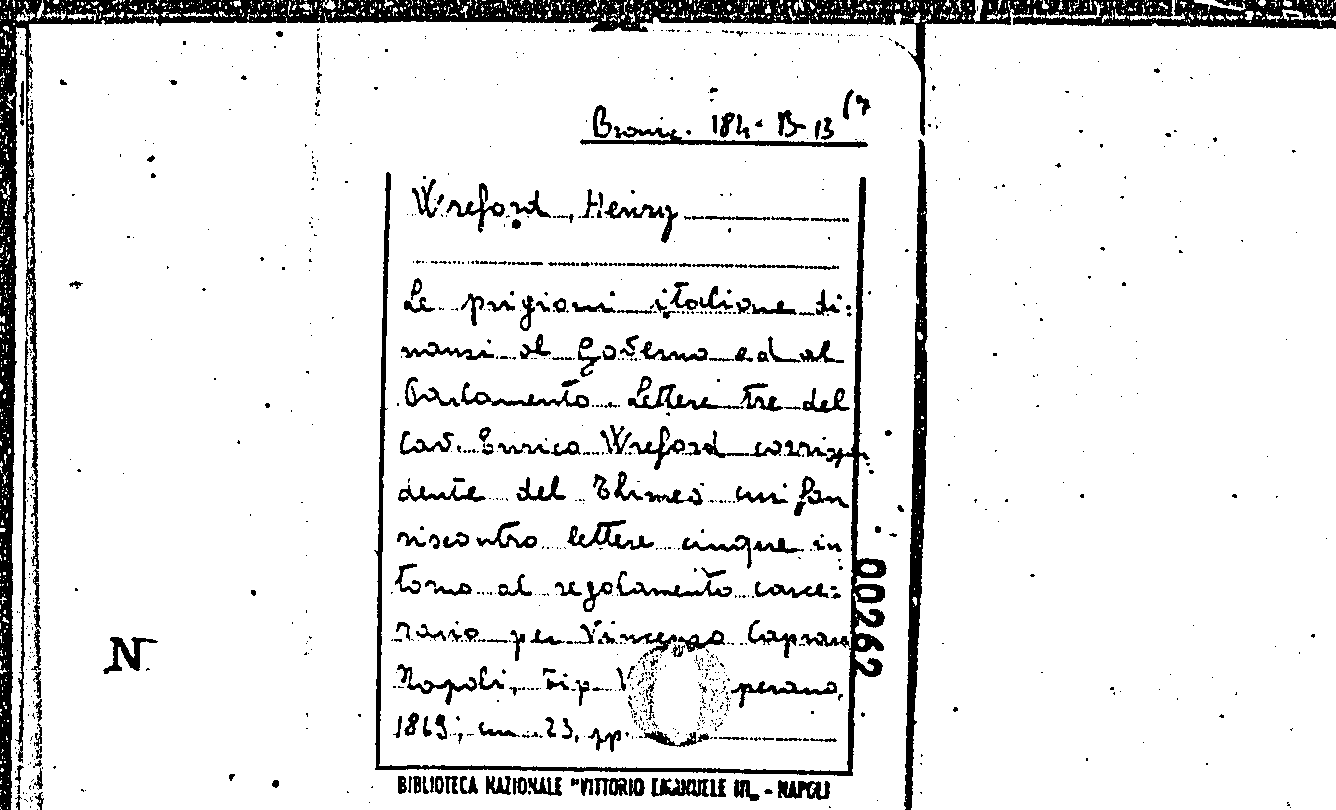 Branc. 184. B-13 (7
Wreford, Henry
Le prigioni italiane di:
nanzi al Governo ed al
Parlamento. Lettere tre del
Cav. Enrico Wreford corrispon
dente del Thimes cui fan
riscontro lettere cinque in
torno al regolamento carce:
rario per Vincenzo Caprara
Napoli, Tip. V perano,
1869; cm. 23, pp.
00262
N
BIBLIOTECA NAZIONALE "VITTORIO EMANUELE III„ - NAPOLI